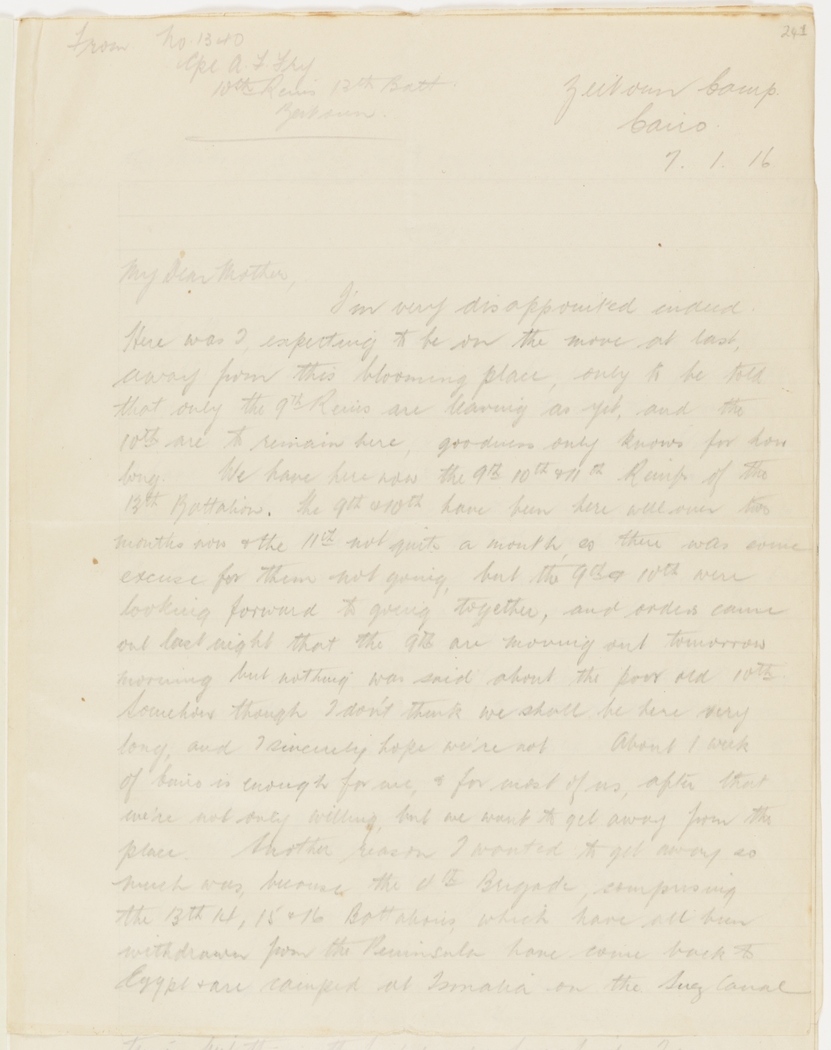 241
From No 1340
Cpl A. L. Fry
10th Reins 13th Batt.
Zeitoun.
Zeitoun Camp.
Cairo.
7. 1. 16
My Dear Mother,
I'm very disappointed indeed.
Here was I, expecting to be on the move at last,
away from this blooming place, only to be told
that only the 9th Reins are leaving as yet, and the
10th are to remain here, goodness only knows for how
long. We have here now the 9th 10th & 11th Reinfs of the
13th Battalion. The 9th & 10th have been here well over two
months now & the 11th not quite a month, so there was some
excuse for them not going, but the 9th & 10th were
looking forward to going together, and orders came
out last night that the 9th are moving out tomorrow
morning but nothing was said about the poor old 10th.
Somehow though I don't think we shall be here very
long, and I sincerely hope we're not. About 1 week
of Cairo is enough for me, & for most of us, after that
we're not only willing, but we want to get away from the
place. Another reason I wanted to get away so
much was, because the 4th Brigade, comprising
the 13th 14, 15 & 16 Battalions, which have all been
withdrawn from the Peninsula have come back to
Egypt & are camped at Ismalia on the Suez Canal